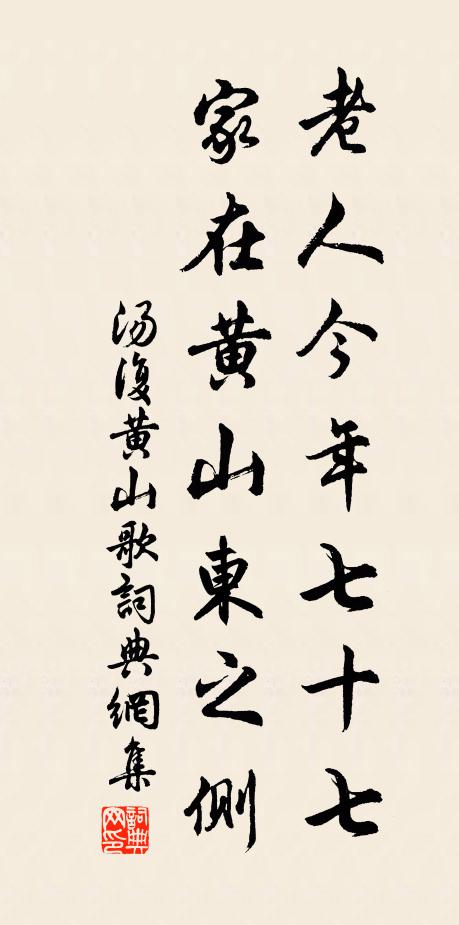 老人今年七十七
家在黄山東之側
汤復黄山歌詞典網集
詞典網印